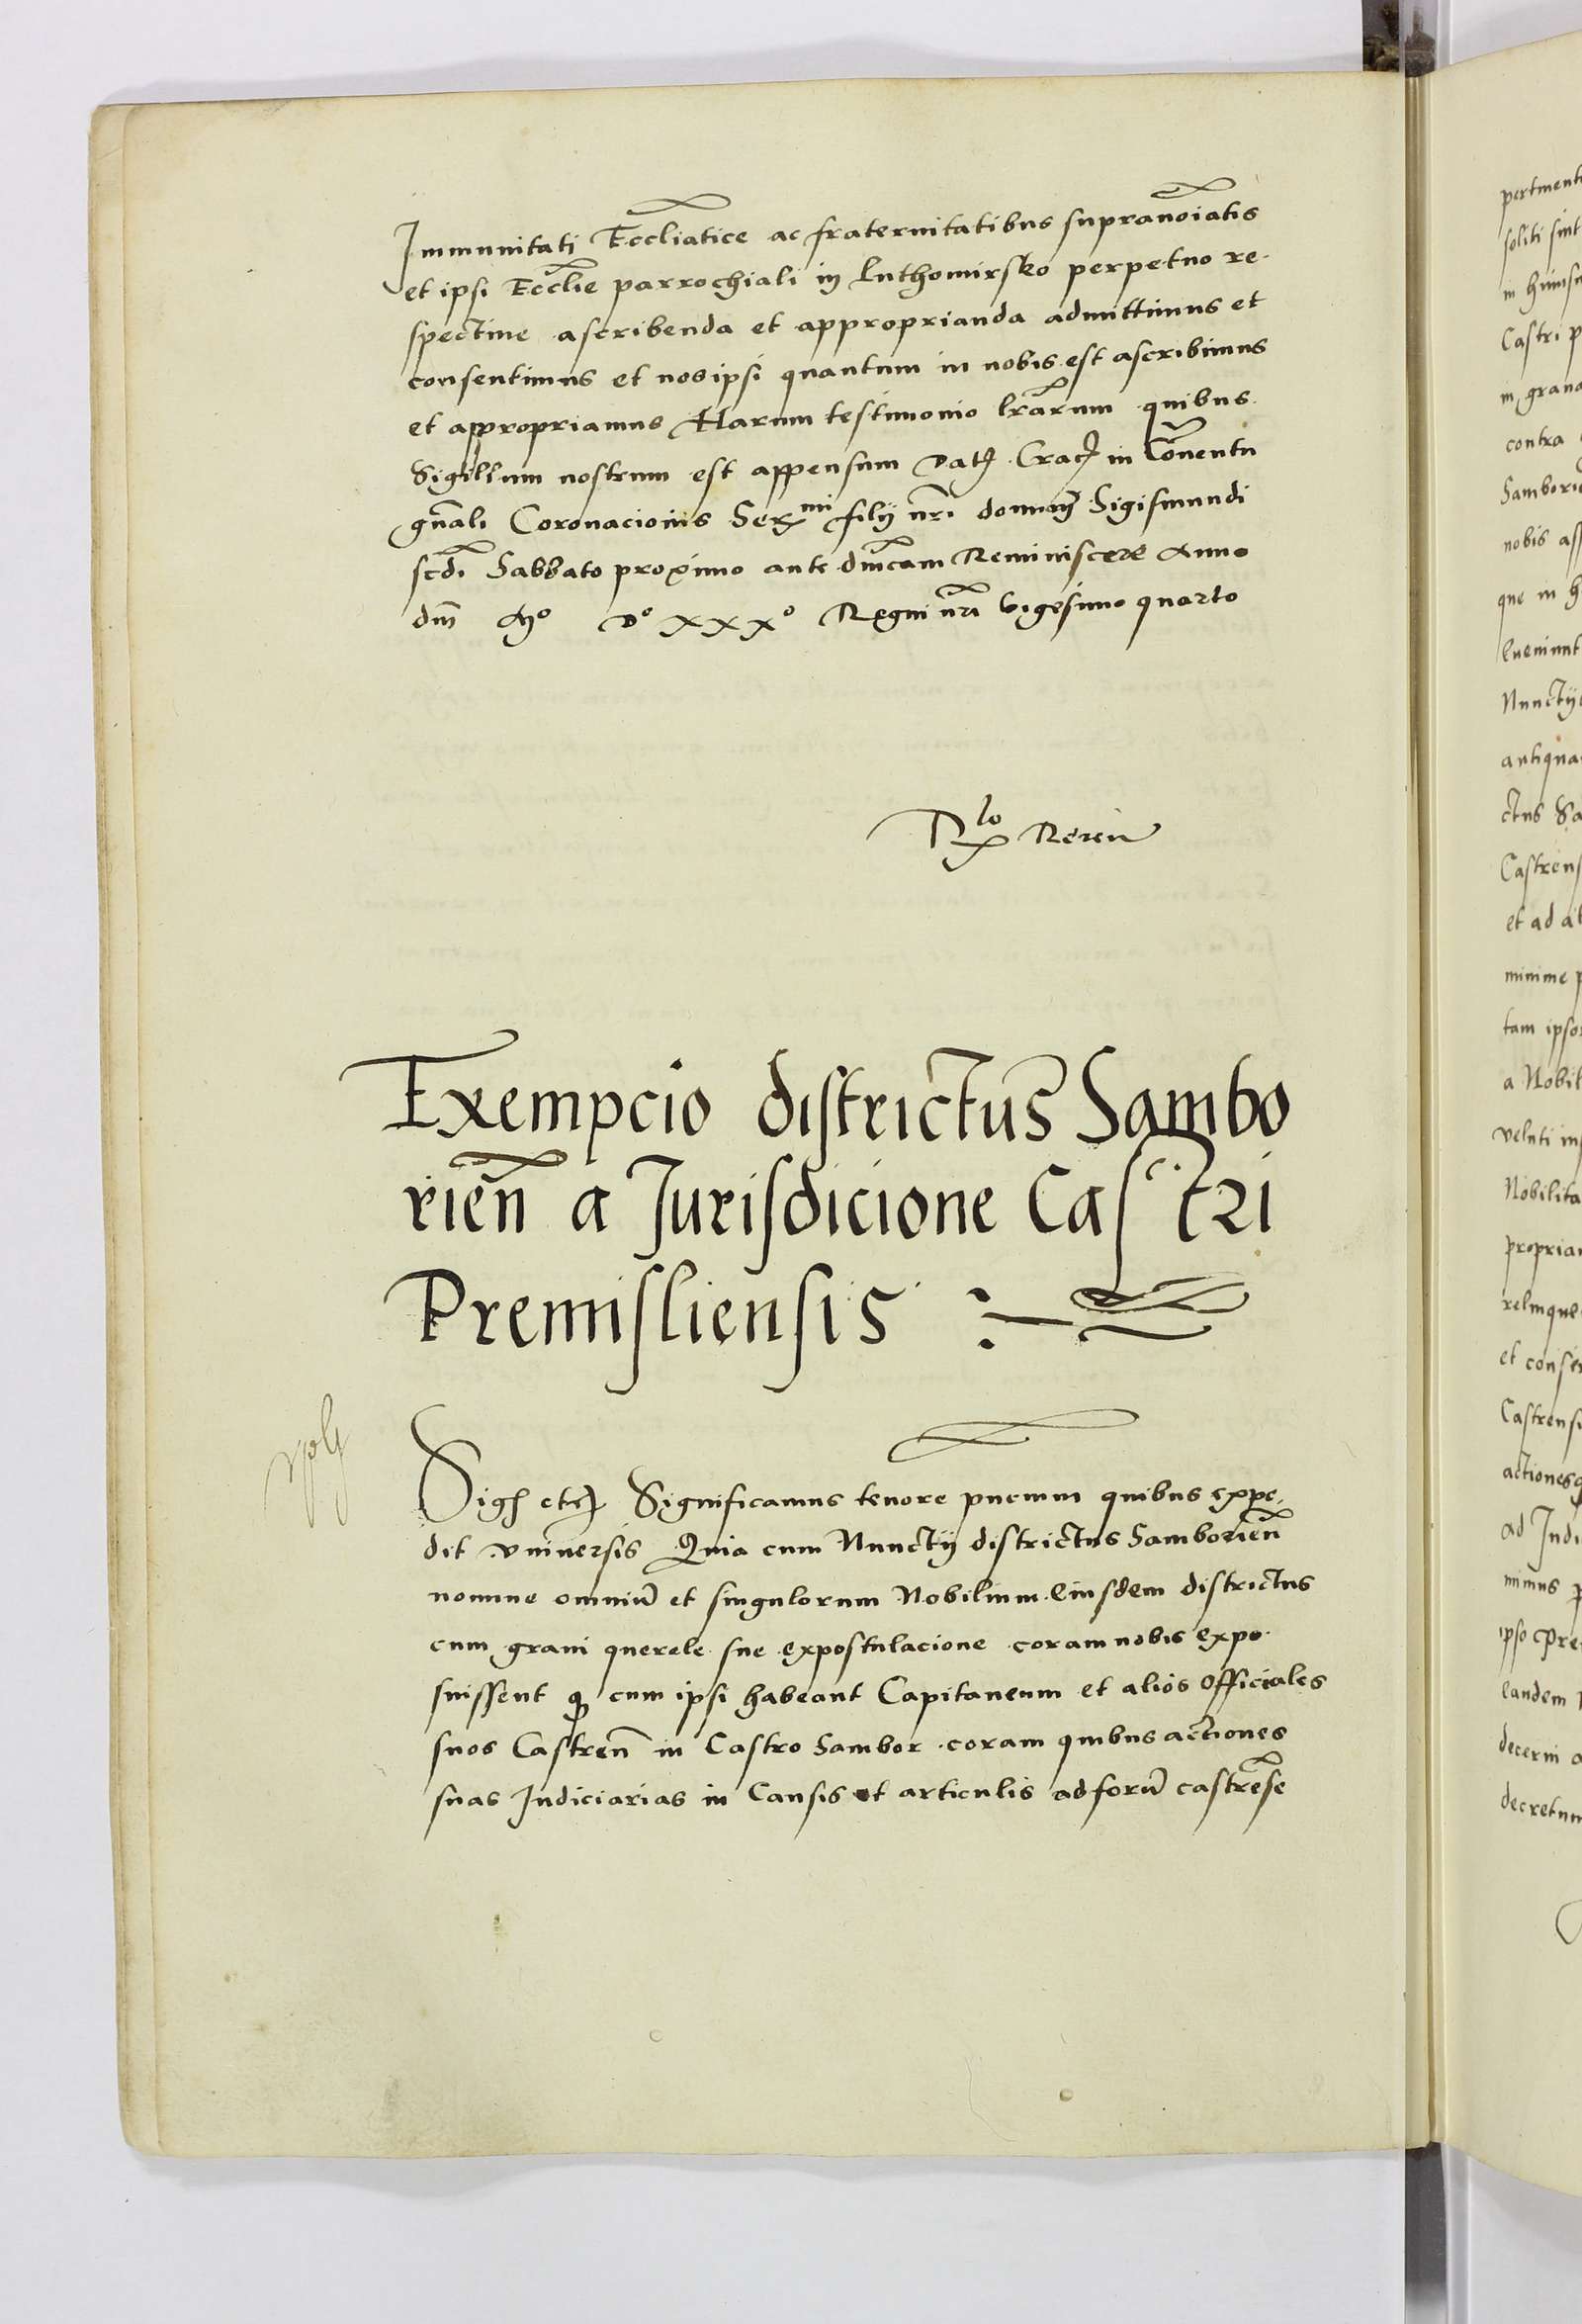 Immunitati Eccliatice ac fraternitatibus supranoiatis
et ipsi Ecclie parrochiali in Luthomirsko perpetuo re-
spectiue ascribenda et approprianda admittimus et
consentimus et nos ipsi quantum in nobis est ascribimus
et appropriamus Harum testimonio lrarum quibus
Sigillum nostrum est appensum Dat Crac in Conuentu
gnali Coronacionis Sermi filij nri domini Sigismundi
scdi Sabbato proximo ante dnicam Reminiscere Anno
dni Mo Do xxxo Regni nri Vigesimo quarto
Rlo
Exempcio districtus Sambo
rien a Jurisdicione Castri
Premisliensis
Sigs etc Significamus tenore pncium quibus expe-
dit vniuersis Quia cum Nunctij districtus Samborien
nomine omniu et singulorum Nobilium Eiusdem districtus
cum graui querele sue expostulacione coram nobis expo-
suissent q cum ipsi habeant Capitaneum et alios Officiales
suos Castren in Castro Sambor coram quibus actiones
suas Judiciarias in Causis et articulis ad foru castrese
soliti sint
Castri
contra
nobis
que in
Nunctij
antiqua
ctus Sa
Castrens
et ad
minime
tam ipso
a Nobil
veluti
Nobilita
propria
relinque
et conse
Castrens
actionesq
ad Judi
ipso Pre
eandem
decerni
decretum